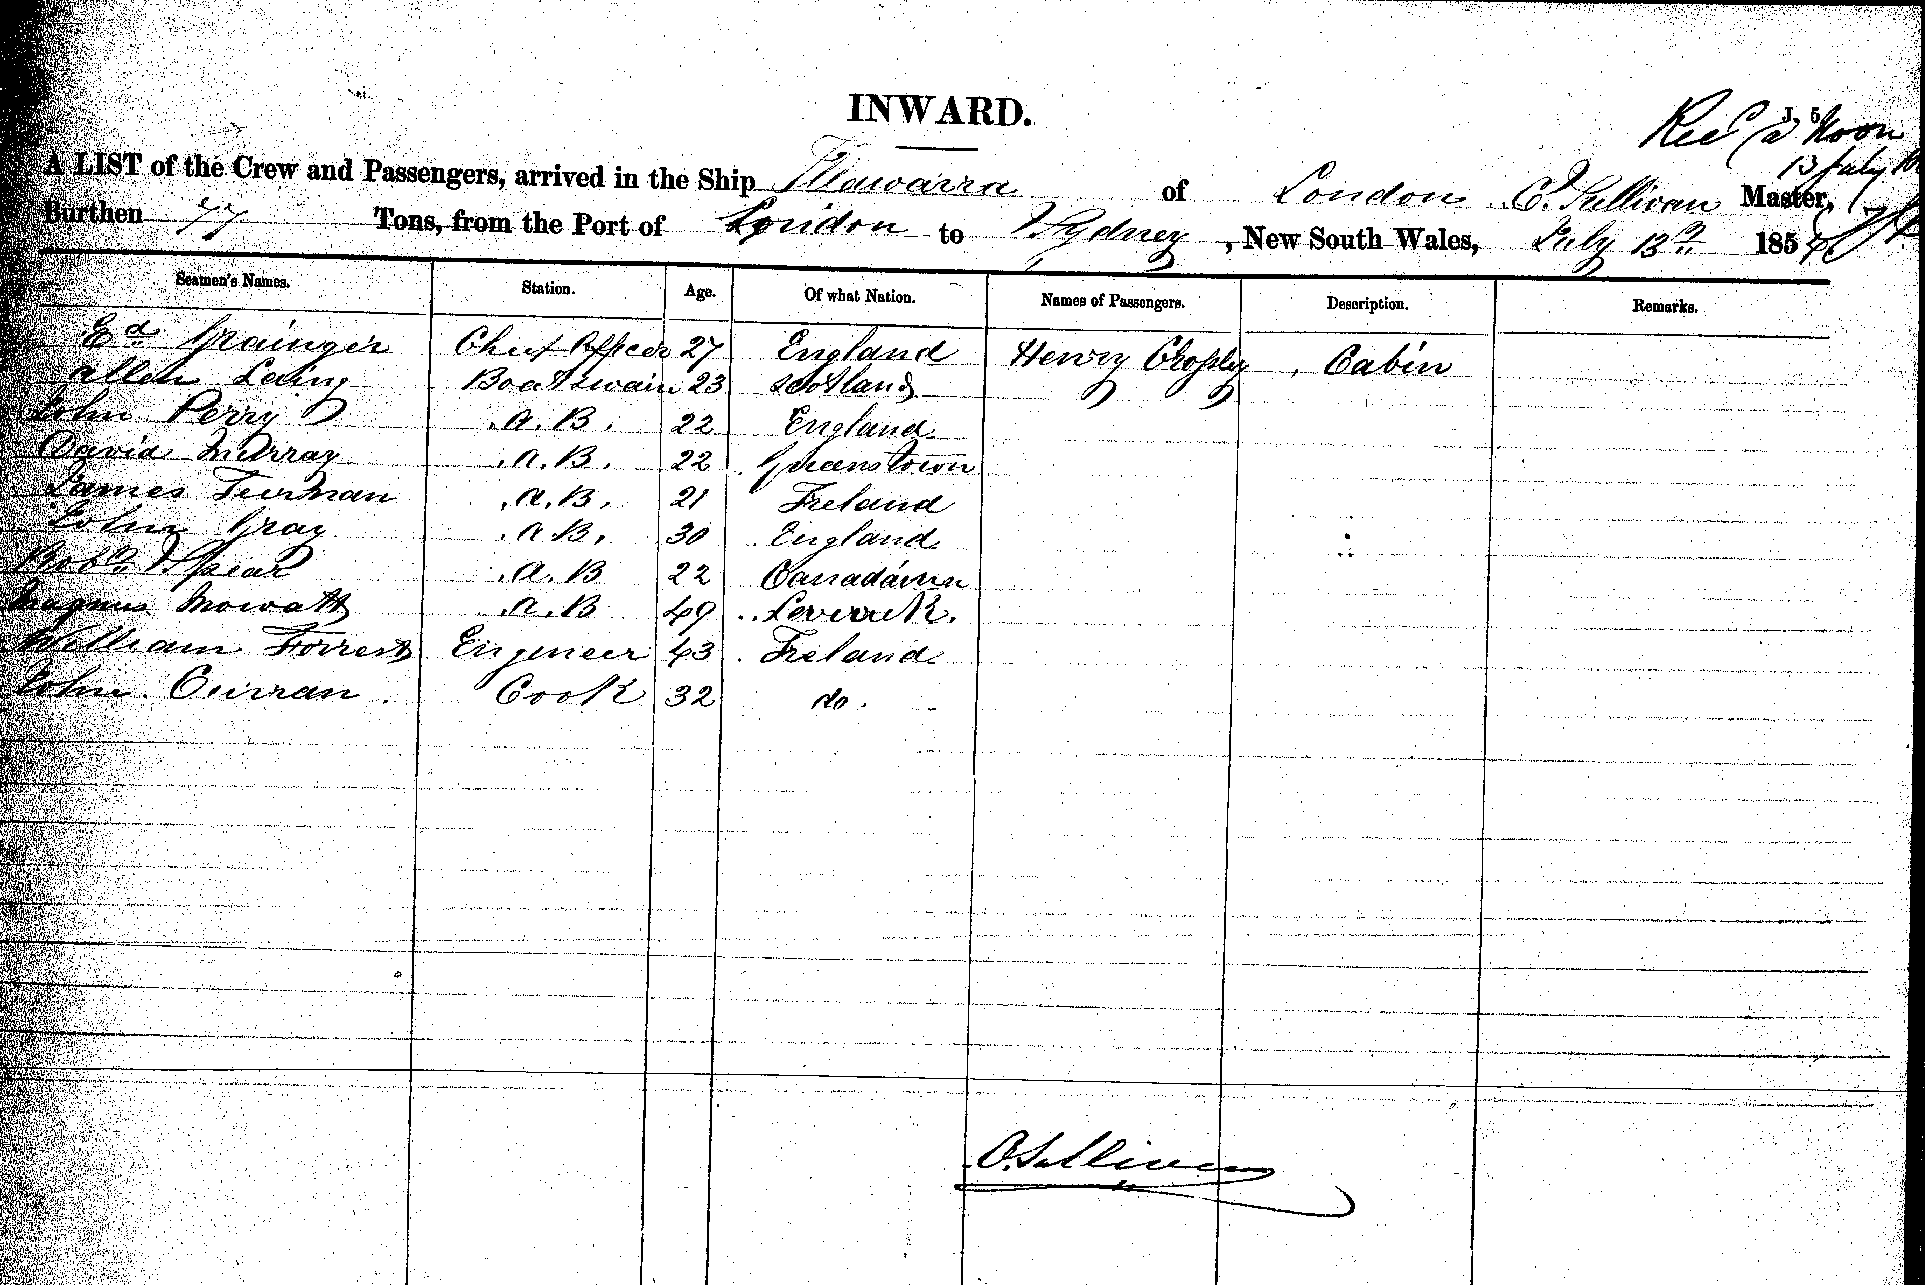 INWARD.
Recd @ Noon
13 July
A LIST of the Crew and Passengers, arrived in the Ship Illawarra of London C. Sullivan Master,
Burthen 77 Tons, from the Port of London to Sydney, New South Wales, July 13th 1854
Seamen's Names. Station. Age. Of what Nation. Names of Passengers. Description. Remarks.
Ed Grainger Chief Officer 27 England Henry Chopley Cabin
Allen Laing Boatswain 23 Scotland
John Perry A.B. 22 England
David Murray A.B. 22 Queenstown
James Turman A.B. 21 Ireland
John Gray A.B. 30 England
Robt Spear A.B 22 Canadamen
Magnus Mowatt A.B 49 Leverrick.
William Forrest Engineer 43 Ireland
John Curran Cook 32 do.
C. Sullivan